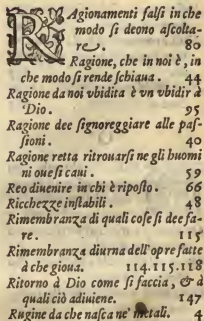 RAgionamenti falsi in che
modo si deono ascolta-
re. 80
Ragione, che in noi è, in
che modo si rende schiaua. 44
Ragione da noi vbidita è vn vbidir à
Dio. 95
Ragione dee signoreggiare alle pas-
sioni. 40
Ragione retta ritrouarsi ne gli huomi
ni oue si caui. 59
Reo diuenire in chi è riposto. 66
Ricchezze instabili. 48
Rimembranza di quali cose si dee fa-
re. 115
Rimembranza diurna dell'opre fatte
à che gioua. 114.115.118
Ritorno à Dio come si faccia, & à
quali ciò adiuiene. 147
Rugine da che nasca ne' metali. 4